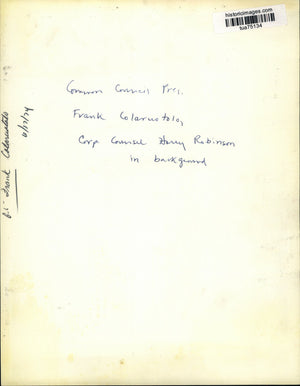 historicimages.com
tua75134
Common Council Pres.
Frank Colaruotolo,
Corp Counsel Harry Robinson
in background
Frank Colaruotolo